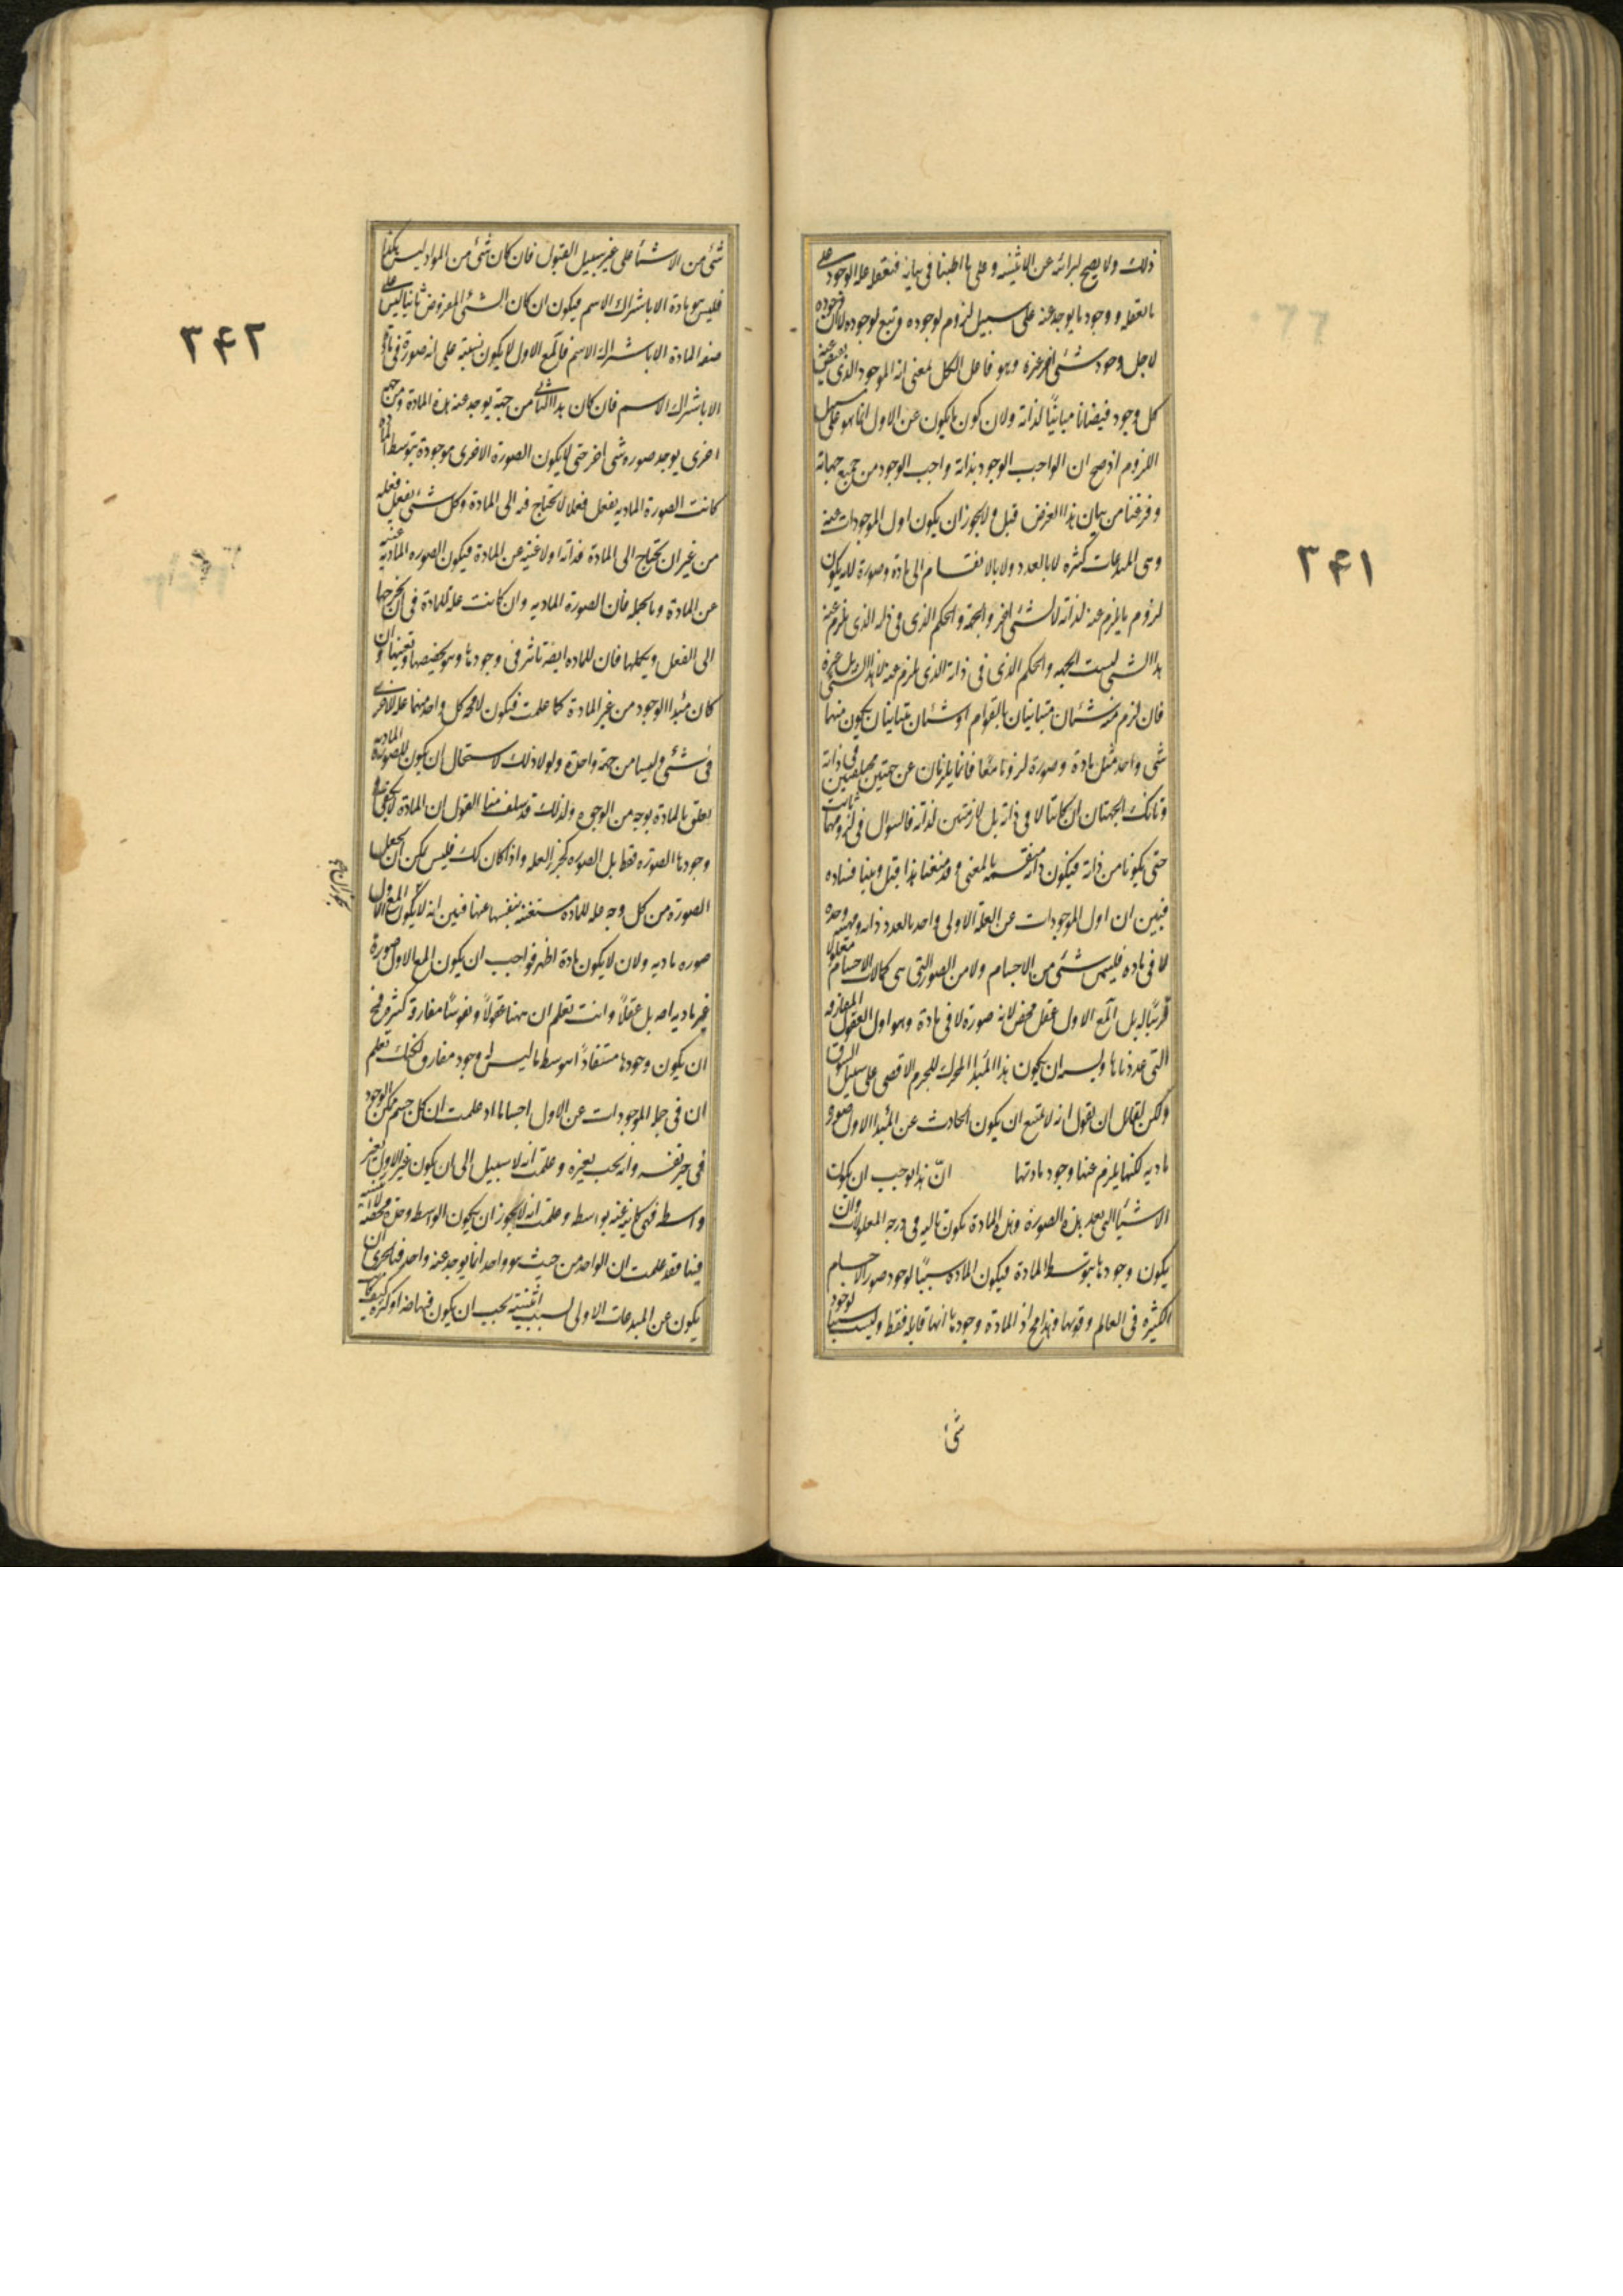 ٣۴١
ذلك ولا يصح لبرائه عن الاثنينيه وعلى ما اطنبنا في بيانه فتعقله عله الوجود على
ما يعقله ووجود ما يوجد عنه على سبيل لزوم لوجوده وتبع لوجوده لا ان وجوده
لاجل وجود شئ اخر غيره وهو فاعل الكل بمعنى انه الموجود الذى يفيض عنه
كل وجود فيضانا مباينًا لذاته ولان كون ما يكون عن الاول انما هو على سبيل
اللزوم اذ صح ان الواجب الوجود بذاته واجب الوجود من جميع جهاته
وفرغنا من بيان هذا الغرض قبل ولا يجوز ان يكون اول الموجودات عنه
وهى المبدعات كثيره لا بالعدد ولا بالانقسام الى مادة وصورة لانه يكون
لزوم ما يلزم عنه لذاته لا لشئ اخر والجهة والحكم الذى فى ذاته الذى يلزم عنه
هذا الشئ ليست الجهه والحكم الذى فى ذاته الذى يلزم عنه لا هذا الشئ بل غيره
فان لزم منه شيئان متباينان بالقوام او شيئان متباينان يكون منهما
شئ واحد مثل مادة وصورة لزوما معًا فانما يلزمان عن جهتين مختلفتين فى ذاته
وتانك الجهتان ان كانتا لا فى ذاته بل لازمتين لذاته فالسوال فى لزومهما ثابت
حتى يكونا من ذاته فيكون ذاته منقسمه بالمعنى وقد منعنا هذا قبل وبينا فساده
فبين ان اول الموجودات عن العلة الاولى واحد بالعدد وذاته وماهيته وحده
لا فى ماده فليس شئ من الاجسام ولا من الصور التى هى كمالات الاجسام معلولا
قريبًا له بل المع الاول عقل محض لانه صورة لا فى مادة وهو اول العقول المفارقه
التى عددناها ويشبه ان يكون هذا المبدا المحرك للجرم الاقصى على سبيل الشوق
ولكن لقائل ان يقول انه لا يمتنع ان يكون الحادث عن المبدا الاول صوره
ماديه لكنها يلزم عنها وجود مادتها انّ هذا يوجب ان يكون
الاشيا التى بعد هذه الصورة وهذه المادة يكون تاليه فى درجه المعلولات وان
يكون وجودها بتوسط المادة فيكون المادة سببًا لوجود صور الاجسام
الكثيره فى العالم وقويها وهذا مح اذ المادة وجودها انها قابله فقط وليست سببا لوجود
شئ
٣۴٢
شئ من الاشيا على غير سبيل القبول فان كان شئ من المواد ليس هكذا
فليس هو مادة الا باشتراك الاسم فيكون ان كان الشئ المفروض ثانيا ليس على
صفه المادة الا باشتراك الاسم فالمع الاول لا يكون نسبته على انه صورة فى مادة
الا باشتراك الاسم فان كان هذا الثانى من جهة يوجد عنه هذه المادة ومن جهه
اخرى يوجد صوره شئ اخر حتى لا يكون الصورة الاخرى موجودة بتوسط المادة
كانت الصورة الماديه يفعل فعلا لا يحتاج فيه الى المادة وكل شئ يفعل فعله
من غير ان يحتاج الى المادة فذاته اولا غنيه عن المادة فيكون الصوره الماديه غنيه
عن المادة وبالجمله فان الصورة الماديه وان كانت عله للمادة فى ان يخرجها
الى الفعل ويكملها فان للماده ايضه تاثير فى وجودها وهو تخصيصها وتعينها وان
كان مبدا الوجود من غير المادة كما علمت فيكون لا محه كل واحد منهما عله للاخرى
فى شئ وليسا من جهة واحدة ولولا ذلك لاستحال ان يكون للصورة الماديه
تعلق بالمادة بوجه من الوجوه ولذلك قد سلف منا القول ان المادة لا يكفى فى
وجودها الصوره فقط بل الصوره كجزء العله واذا كان كك فليس يمكن ان يجعل
الصورة من كل وجه عله للمادة مستغنيه بنفسها عنها فبين انه لا يكون المع الاول
صوره ماديه ولان لا يكون مادة اظهر فواجب ان يكون المع الاول صورة
غير ماديه اصه بل عقلاً وانت تعلم ان ههنا عقولاً ونفوسًا مفارقه كثيره فمح
ان يكون وجودها مستفاداً بتوسط ما ليس له وجود مفارق لكنك تعلم
ان فى جمله الموجودات عن الاول اجساما اذ علمت ان كل جسم ممكن الوجود
فى حيز نفسه وانه يجب بغيره وعلمت انه لا سبيل الى ان يكون عن الاول بغير
واسطه فهى كاينه عنه بواسطه وعلمت انه لا يجوز ان يكون الواسطه وحدة محضه لا اثنينيه
فيها فقد علمت ان الواحد من حيث هو واحد انما يوجد عنه واحد فبالحرى ان
يكون عن المبدعات الاولى بسبب اثنينيه يجب ان يكون فيها ضه او كثره كيف كان